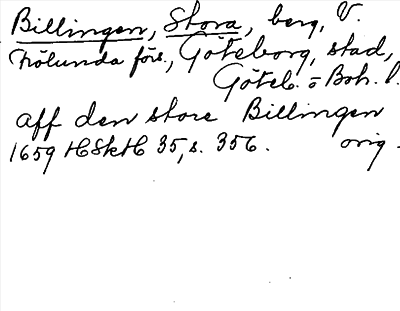 Billingen, Stora, berg, V.
Frölunda förs., Göteborg, stad,
Göteb. o Boh. l.
aff den store Billingen
1659 HSkH 35, s. 356. orig.